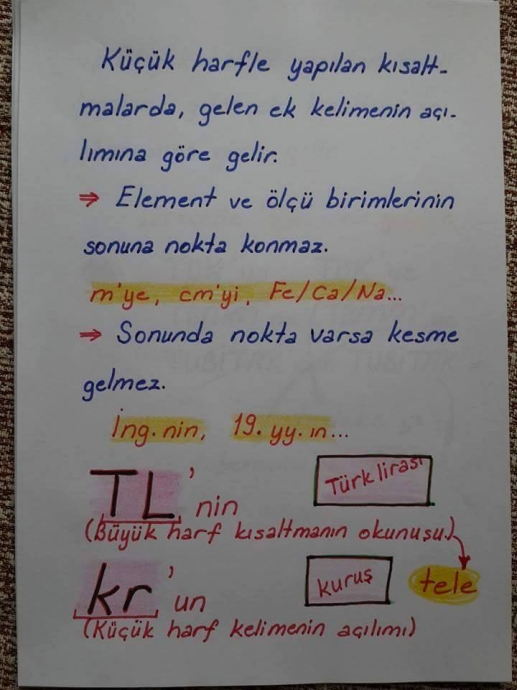 Küçük harfle yapılan kısalt-
malarda, gelen ek kelimenin açı-
lımına göre gelir.
⇒ Element ve ölçü birimlerinin
sonuna nokta konmaz.
m'ye, cm'yi, Fe/Ca/Na...
⇒ Sonunda nokta varsa kesme
gelmez.
İng.nin, 19. yy.ın...
TL'nin Türk lirası
(Büyük harf kısaltmanın okunuşu.)
kr'un kuruş tele
(Küçük harf kelimenin açılımı)